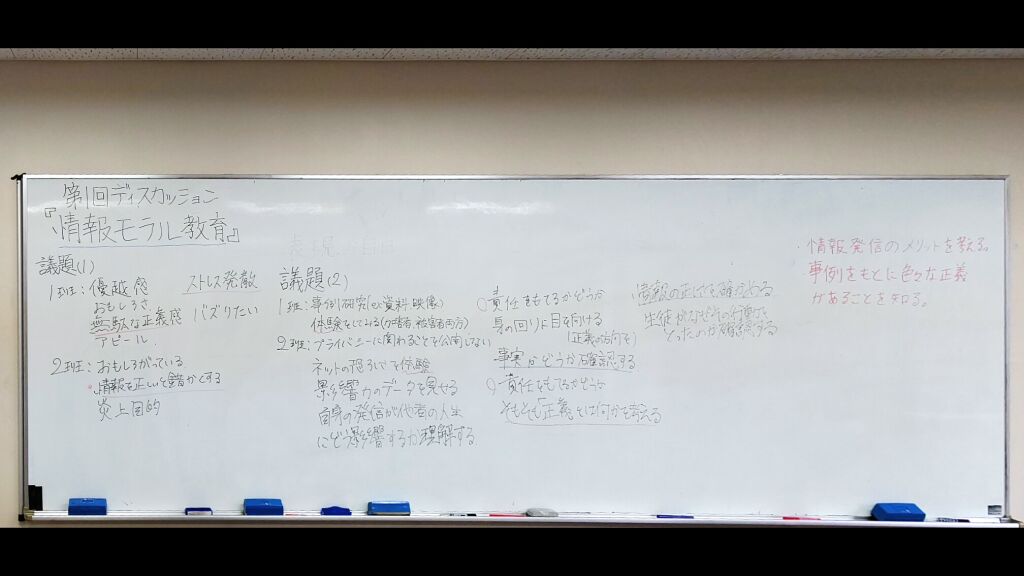 第1回ディスカッション
『情報モラル教育』
議題(1)
1班:優越感
おもしろさ
無駄な正義感
アピール.
ストレス発散
バズりたい
2班:おもしろがっている
情報を正しいと錯かくする
炎上目的
議題(2)
1班:事例研究(ex資料映像)
体験をしてみる(加害者,被害者両方)
2班:プライバシーに関わることを公開しない
ネットの恐ろしさを体験
影響力のデータを見せる
自身の発信が他者の人生
にどう影響するか理解する
責任をもてるかどうか
身の回りに目を向ける
(正義の方向を)
事実かどうか確認する
責任をもてるかどうか
そもそも「正義」とは何かを考える
情報の正しさを確かめる
生徒がなぜその行動を
とったのか確認する
・情報発信のメリットを考える。
事例をもとに色々な正義
があることを知る。